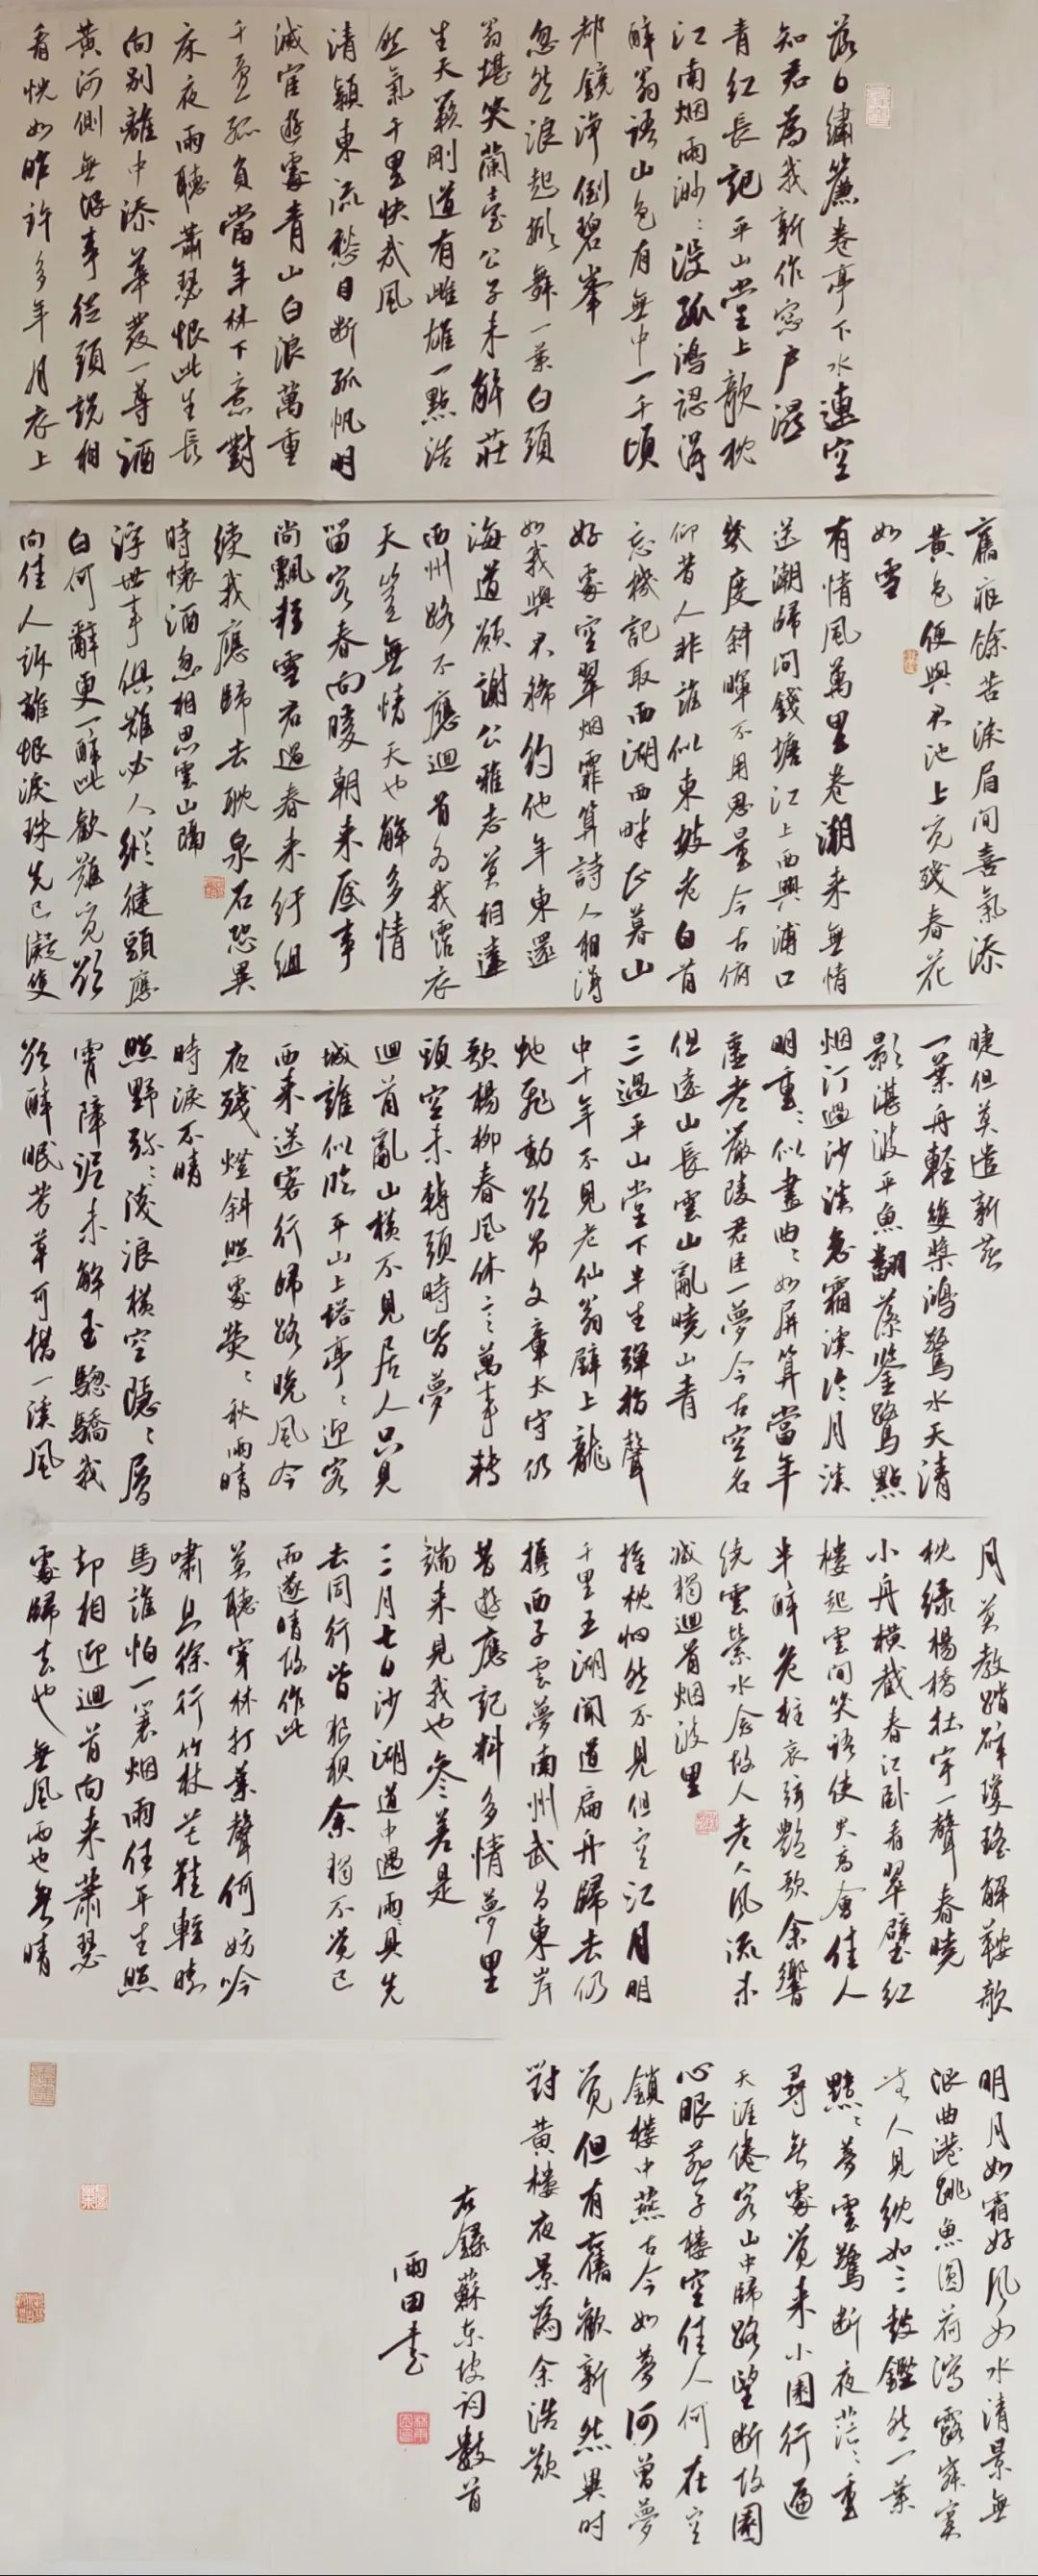 落日繡簾卷亭下水連空
知君為我新作窗戶濕
青紅長記平山堂上欹枕
江南烟雨渺〻沒孤鴻認得
醉翁語山色有無中一千頃
都鏡淨倒碧峯
忽然浪起掀舞一葉白頭
翁堪笑蘭臺公子未解莊
生天籟剛道有雌雄一點浩
然氣千里快哉風
清潁東流愁目斷孤帆明
滅宦遊處青山白浪萬重
千疊孤負當年林下意對
床夜雨聽蕭瑟恨此生長
向別離中添華髮一尊酒
黃河側無限事從頭說相
看恍如昨許多年月衣上
舊痕餘苦淚眉間喜氣添
黃色便與君池上覓殘春花
如雪
有情風萬里卷潮來無情
送潮歸問錢塘江上西興浦口
幾度斜暉不用思量今古俯
仰昔人非誰似東坡老白首
忘機記取西湖西畔正暮山
好處空翠烟霏算詩人相得
如我與君稀約他年東還
海道願謝公雅志莫相違
西州路不應迴首為我霑衣
天豈無情天也解多情
留客春向暖朝來底事
尚飄輕雪君過春來紆組
綬我應歸去耽泉石恐異
時懷酒忽相思雲山隔
浮世事俱難必人縱健頭應
白何辭更一醉此歡難覓欲
向佳人訴離恨淚珠先已凝雙
睫但莫遣新燕
一葉舟輕雙槳鴻驚水天清
影湛波平魚翻藻鑒鷺點
烟汀過沙溪急霜溪冷月溪
明重〻似畫曲〻如屏算當年
虛老嚴陵君臣一夢今古空名
但遠山長雲山亂曉山青
三過平山堂下半生彈指聲
中十年不見老仙翁壁上龍
蛇飛動欲弔文章太守仍
歌楊柳春風休言萬事轉
頭空未轉頭時皆夢
迴首亂山橫不見居人只見
城誰似臨平山上塔亭〻迎客
西來送客行歸路晚風今
夜殘燈斜照處熒〻秋雨晴
時淚不晴
照野瀰〻淺浪橫空隱〻層
霄障泥未解玉驄驕我
欲醉眠芳草可惜一溪風
月莫教踏碎瓊瑤解鞍欹
枕綠楊橋杜宇一聲春曉
小舟橫截春江臥看翠壁紅
樓起雲間笑語使君高會佳人
半醉危柱哀絃艷歌余響
繞雲縈水念故人老人風流未
減獨迴首烟波里
推枕惘然不見但空江月明
千里五湖聞道扁舟歸去仍
攜西子雲夢南州武昌東岸
昔遊應記料多情夢里
端來見我也參差是
三月七日沙湖道中遇雨〻具先
去同行皆狼狽余獨不覺已
而遂晴故作此
莫聽穿林打葉聲何妨吟
嘯且徐行竹杖芒鞋輕勝
馬誰怕一蓑烟雨任平生照
却相迎迴首向來蕭瑟
處歸去也無風雨也無晴
明月如霜好風如水清景無
限曲港跳魚圓荷瀉露寂寞
無人見紞如三鼓鏗然一葉
黯〻夢雲驚斷夜茫〻重
尋無處覺來小園行遍
天涯倦客山中歸路望斷故園
心眼燕子樓空佳人何在空
鎖樓中燕古今如夢何曾夢
覺但有舊歡新怨異時
對黃樓夜景為余浩歎
右錄蘇東坡詞數首
雨田書